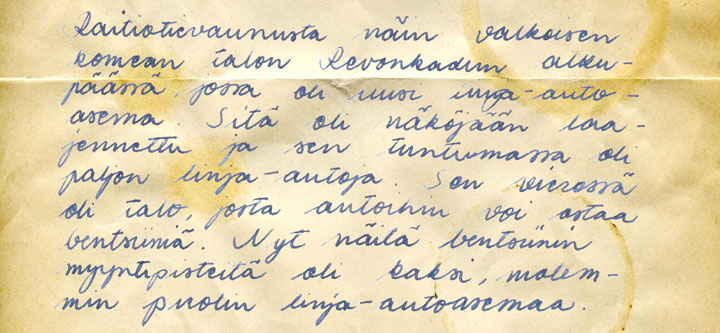 Raitiotievaunusta näin valkoisen
komean talon Revonkadun alku-
päässä, jossa oli uusi linja-auto-
asema. Sitä oli näköjään laa-
jennettu ja sen tuntumassa oli
paljon linja-autoja. Sen vieressä
oli talo, josta autoihin voi ostaa
bentsiiniä. Nyt näitä bentsiinin
myyntipisteitä oli kaksi, molem-
min puolin linja-autoasemaa.